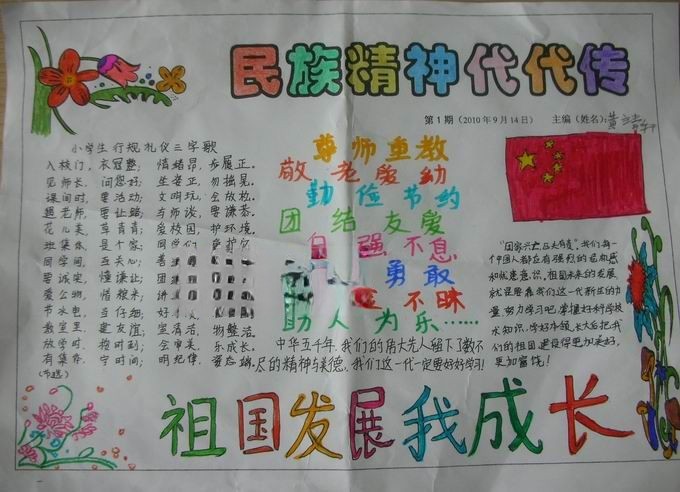 民族精神代代传
第1期（2010年9月14日） 主编（姓名）：黄
小学生行规礼仪三字歌
入校门，衣冠整， 情绪昂，步履正。
见师长，问您好； 坐姿正，勿摇晃。
课间时，要活动； 文明玩，
遇老师，要让路； 与师谈，要谦恭。
花儿美，草青青； 爱校园，护环境。
班集体，是个家； 同学们
同学间，互关心；
要诚实，懂谦让；
爱公物，惜粮米；
节水电，
教室里，建友谊；
放学时，按时到； 会审美，乐成长。
有集存，守时间； 明纪律，
（节选）
尊师重教
敬老爱幼
勤俭节约
团结友爱
自强不息
勇敢
不昧
助人为乐……
中华五千年，我们的伟大先人留下了数不
尽的精神与美德，我们这一代一定要好好学习！
"国家兴亡，匹夫有责"，我们每一
个中国人都应有强烈的
和忧患意识，祖国未来的发展
就是要靠我们这一代新生的力
量，努力学习吧，掌握好科学技
术知识，学好本领，长大后把我
们的祖国建设得更加美好，
更加富饶！
祖国发展我成长